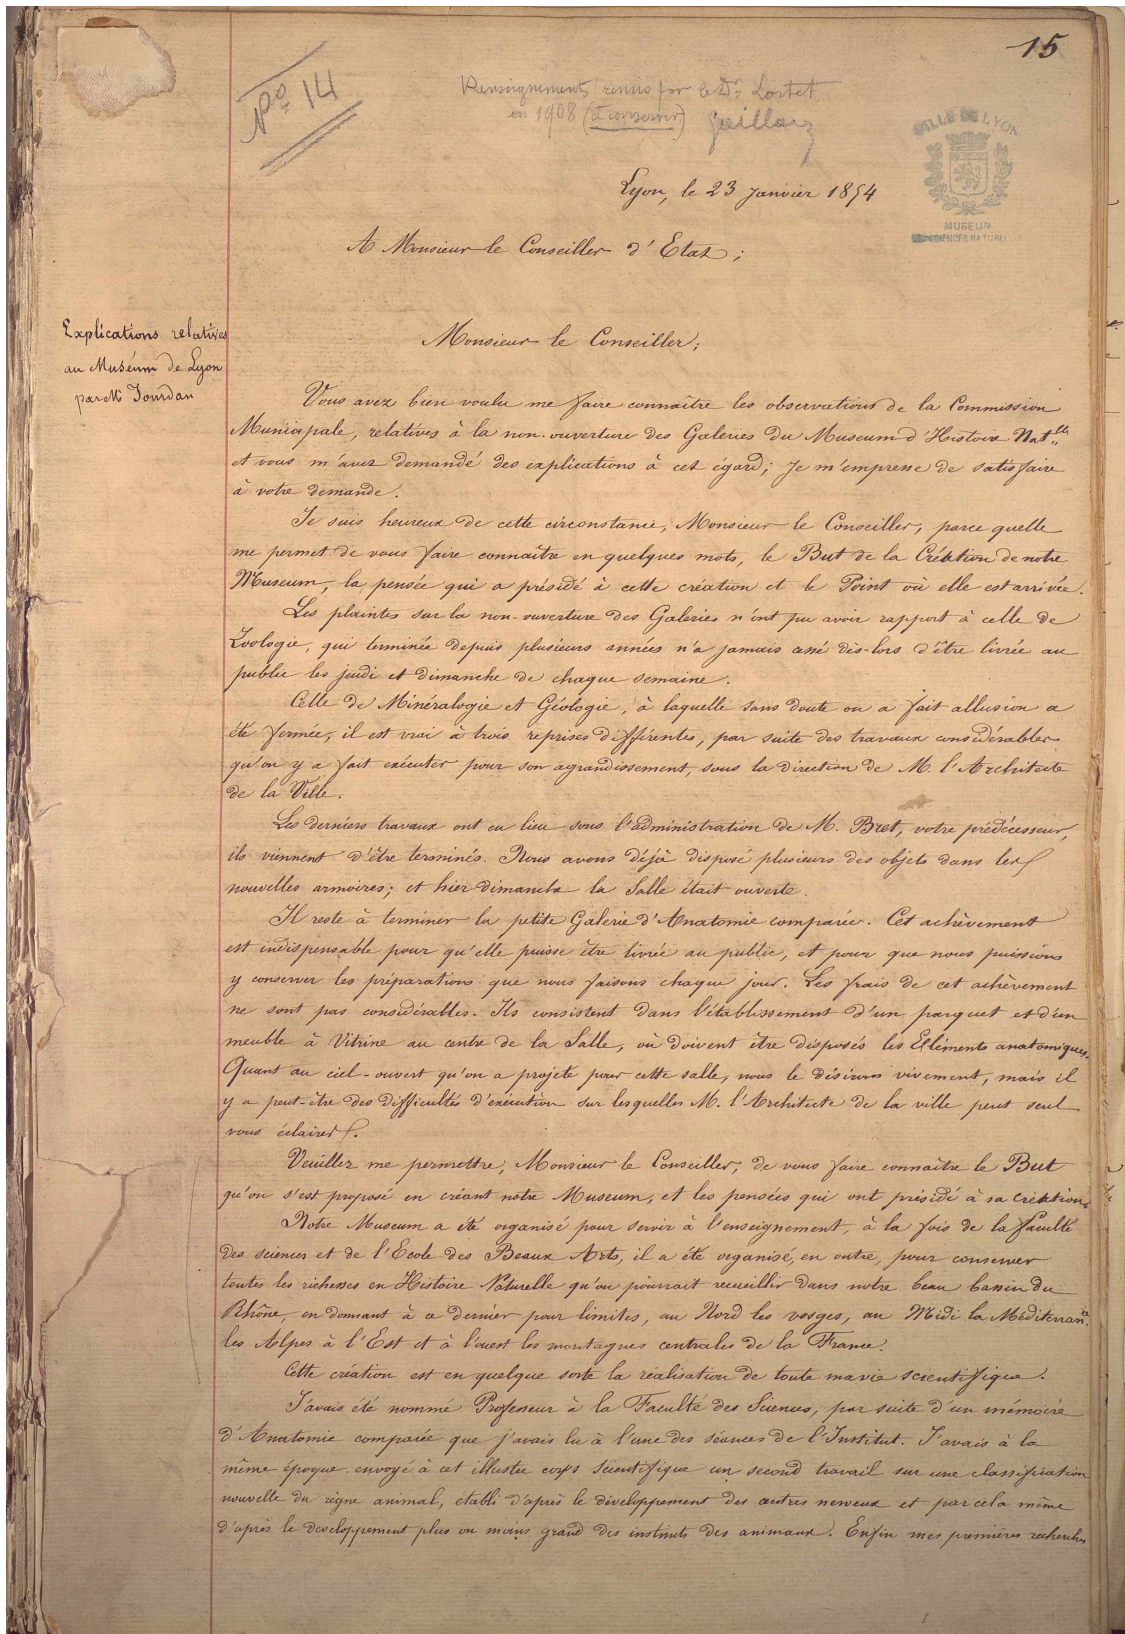 15
No 14
Renseignements remis par le Dr Lortet
en 1908 (à conserver) Gaillard
VILLE DE LYON
MUSEUM
SCIENCES NATURELLES
Lyon, le 23 Janvier 1854
A Monsieur le Conseiller d'Etat;
Explications relatives
au Muséum de Lyon
par Mr Jourdan
Monsieur le Conseiller;
Vous avez bien voulu me faire connaître les observations de la Commission
Municipale, relatives à la non-ouverture des Galeries du Museum d'Histoire Natlle
et vous m'avez demandé des explications à cet égard; Je m'empresse de satisfaire
à votre demande.
Je suis heureux de cette circonstance, Monsieur le Conseiller; parce quelle
me permet de vous faire connaître en quelques mots, le But de la Création de notre
Museum, la pensée qui a présidé à cette création et le Point où elle est arrivée.
Les plaintes sur la non-ouverture des Galeries n'ont pu avoir rapport à celle de
Zoologie, qui terminée depuis plusieurs années n'a jamais cessé dès-lors d'être livrée au
public les jeudi et dimanche de chaque semaine.
Celle de Minéralogie et Géologie, à laquelle sans doute on a fait allusion a
été fermée, il est vrai à trois reprises différentes, par suite des travaux considérables
qu'on y a fait exécuter pour son agrandissement, sous la direction de M. l'Architecte
de la Ville.
Les derniers travaux ont eu lieu sous l'administration de M. Bret, votre prédécesseur,
ils viennent d'être terminés. Nous avons déjà disposé plusieurs des objets dans les
nouvelles armoires; et hier dimanche la Salle était ouverte.
Il reste à terminer la petite Galerie d'Anatomie comparée. Cet achèvement
est indispensable pour qu'elle puisse être livrée au public, et pour que nous puissions
y conserver les préparations que nous faisons chaque jour. Les frais de cet achèvement
ne sont pas considérables. Ils consistent dans l'établissement d'un parquet et d'un
meuble à Vitrine au centre de la Salle, où doivent être disposés les Eléments anatomiques.
Quant au ciel-ouvert qu'on a projeté pour cette salle, nous le désirons vivement, mais il
y a peut-être des difficultés d'exécution sur lesquelles M. l'Architecte de la ville peut seul
vous éclairer.
Veuillez me permettre, Monsieur le Conseiller, de vous faire connaître le But
qu'on s'est proposé en créant notre Museum, et les pensées qui ont présidé à sa création.
Notre Museum a été organisé pour servir à l'enseignement, à la fois de la faculté
des sciences et de l'Ecole des Beaux Arts, il a été organisé, en outre, pour conserver
toutes les richesses en Histoire Naturelle qu'on pourrait recueillir dans notre beau bassin du
Rhône, en donnant à ce dernier pour limites, au Nord les vosges, au Midi la Méditerranée
les Alpes à l'Est et à l'ouest les montagnes centrales de la France.
Cette création est en quelque sorte la réalisation de toute ma vie scientifique.
J'avais été nommé Professeur à la Faculté des Sciences, par suite d'un mémoire
d'Anatomie comparée que j'avais lu à l'une des séances de l'Institut. J'avais à la
même époque envoyé à cet illustre corps Scientifique un second travail sur une classification
nouvelle du règne animal, établi d'après le développement des centres nerveux et par cela même
d'après le développement plus ou moins grand des instincts des animaux. Enfin mes premières recherches